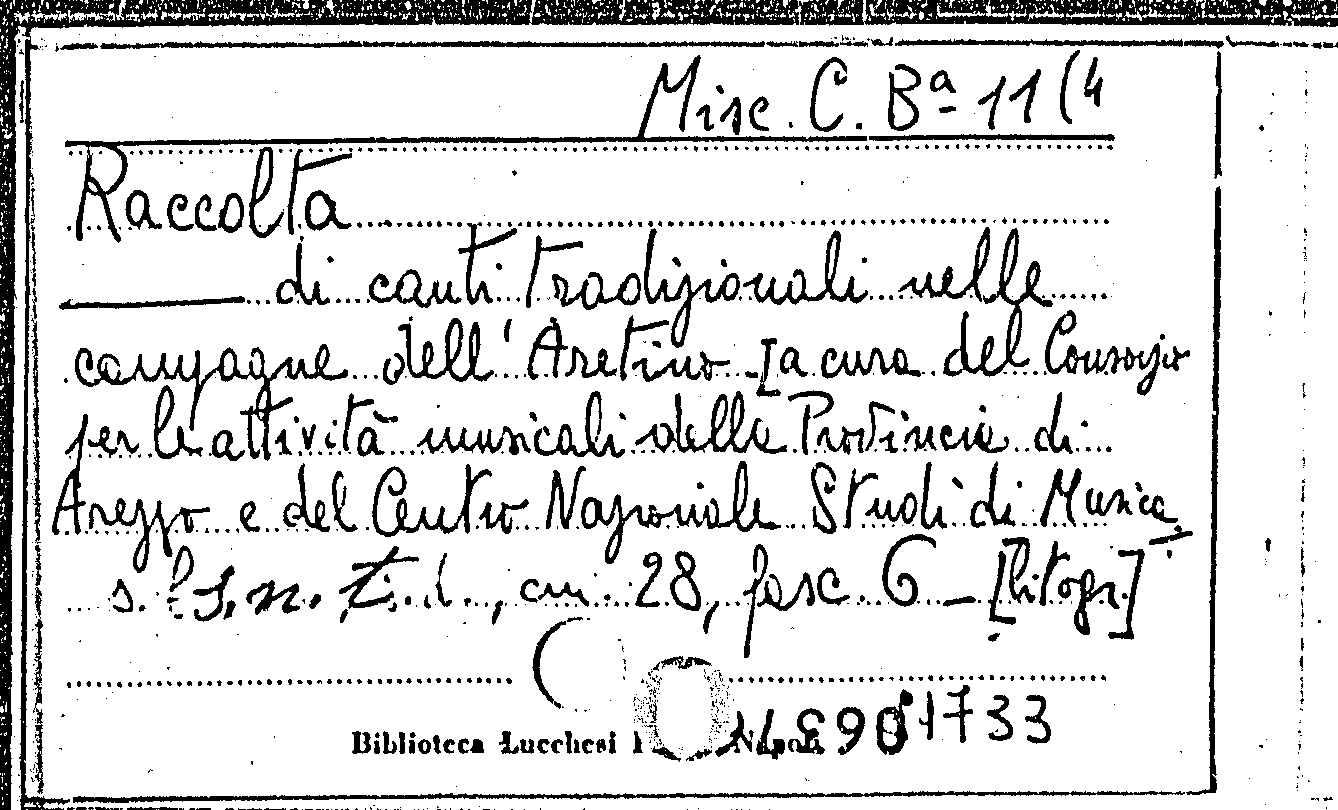 Misc. C. Bª 11 (4
Raccolta
di canti tradizionali nelle
campagne dell'Aretino - [a cura del Consorzio
per le attività musicali della Provincia di
Arezzo e del Centro Nazionale Studi di Musica
s. l. s. n. t. , cm. 28, fasc. 6 - [litogr.]
1733
Biblioteca Lucchesi Napoli